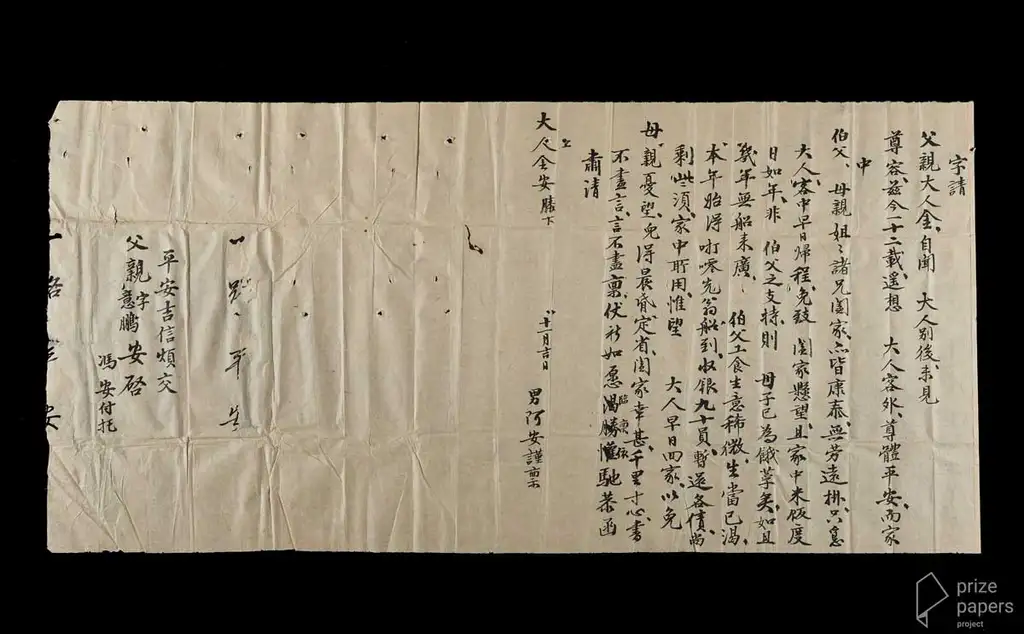 字請
父親大人金、自聞 大人別後、未見
尊容、茲今一十二載、遥想 大人客外、尊體平安、而家
中
伯父、母親姐々諸兄闔家亦皆康泰、無労遠掛、只急
大人、客中早日歸程、免致 闔家懸望、且家中米飯度
日如年、非 伯父之支持、則 母子已為餓莩矣、如且
幾年無船来廣、 伯父工食生意稀微、生當已渴、
本年始得 翁船到、收銀九十員、暫還各債、尚
剩些須、家中所用、惟望 大人早日回家、以免
母親憂望、免得晨昏定省、闔家幸甚、千里寸心、書
不盡言、言不盡禀、伏祈如愿、臨 馳恭函
肅請
上
大人金安膝下
十一月吉日 男阿安謹禀
一路平安
平安吉信煩交
父親字意鵬安啓
馮安付托
一路平安
prize
papers
project